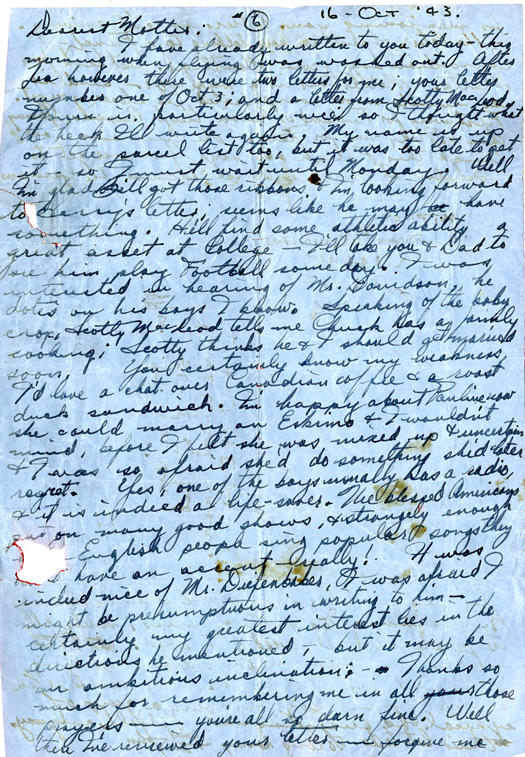 "⑥ 16 - Oct '43.
Dearest Mother:
I have already written to you today - this
morning when flying was washed out. After
tea however there were two letters for me; yours letter
number one of Oct 3; and a letter from Scotty Macleod.
Yours is particularly nice so I thought what
the heck I'll write again. My name is up
on the parcel list too, but it was too late to get
it so I must wait until Monday. Well
I'm glad Bill got those ribbons & I'm looking forward
to Barry's letter, seems like he may be have
something. He'll find some athletic ability a
great asset at College - I'll take you & Dad to
see him play Football someday. I was
interested in hearing of Mr. Davidson, he
dotes on his boys I know. Speaking of the baby
crop, Scotty Macleod tells me Chuck has a family
cooking; Scotty thinks he & I should get married
soon. You certainly know my weakness,
I'd love a chat over Canadian coffee & a roast
duck sandwich. I'm happy about Pauline now
she could marry an Eskimo & I wouldn't
mind, before I felt she was mixed up & uncertain
& I was so afraid she'd do something she'd later
regret. Yes, one of the boys usually has a radio,
& it is indeed a life-saver. The blessed Americans
put on many good shows, & strangely enough
English people sing popular songs they
have an accent really! It was
indeed nice of Mr. Diefenbaker, I was afraid I
might be presumptuous in writing to him -
certainly my greatest interest lies in the
directions he mentioned, but it may be
an ambitious inclination; - Thanks so
much for remembering me in all your those
prayers - you're all so darn fine. Well
then I've reviewed your letter - forgive me